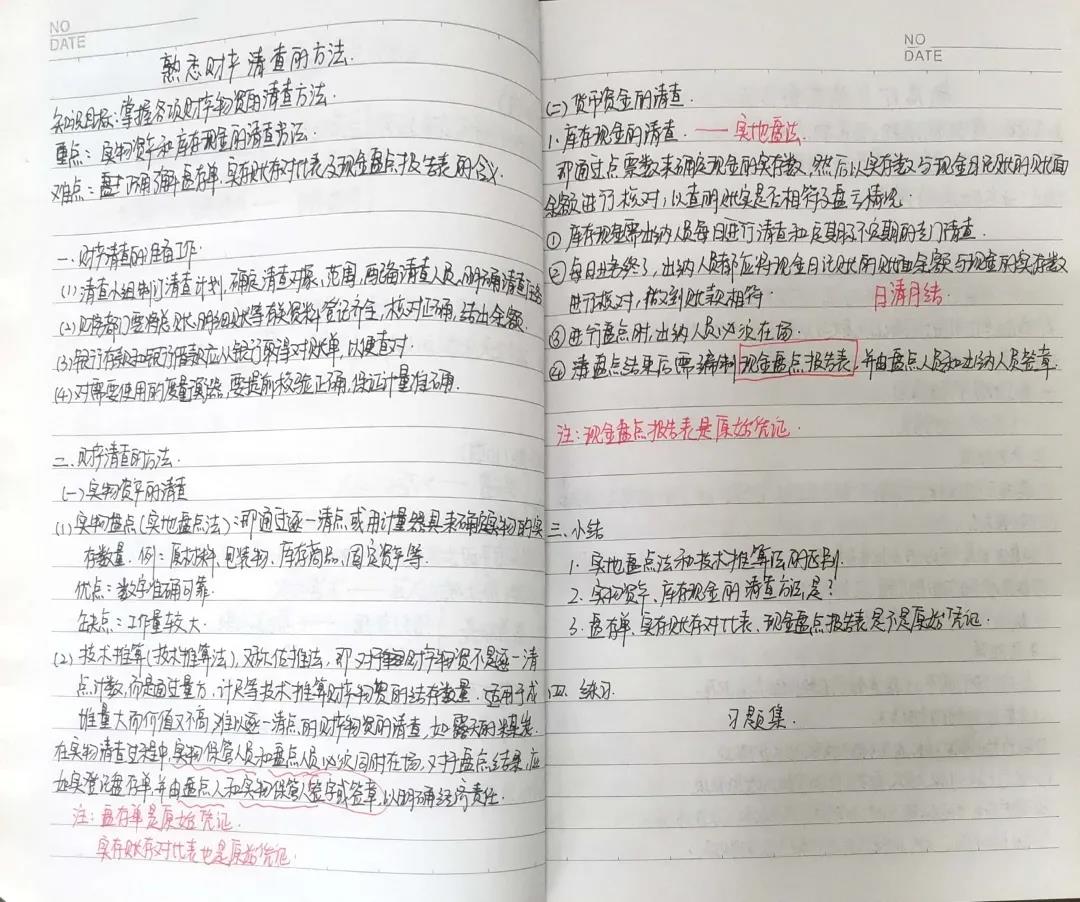 NO
DATE
熟悉财产清查的方法.
知识目标：掌握各项财产物资的清查方法.
重点：实物资产和库存现金的清查方法.
难点：正确理解盘存单、实存账存对比表及现金盘点报告表的含义.
一、财产清查的准备工作.
(1) 清查小组制订清查计划，确定清查对象、范围，配备清查人员，明确清查任务
(2) 财务部门要将总账、明细账等有关资料登记齐全，核对正确，结出余额.
(3) 银行存款和银行借款应从银行取得对账单，以便查对.
(4) 对需要使用的度量衡器，要提前校验正确，保证计量准确.
二、财产清查的方法.
(一) 实物资产的清查
(1) 实物盘点（实地盘点法）：即通过逐一清点或用计量器具来确定实物的实
存数量. 例：原材料、包装物、库存商品、固定资产等.
优点：数字准确可靠.
缺点：工作量较大.
(2) 技术推算（技术推算法），又称估推法，即对于财产物资不是逐一清
点计数，而是通过量方、计尺等技术推算财产物资的结存数量. 适用于成
堆量大而价值又不高，难以逐一清点的财产物资的清查，如露天的煤炭.
在实物清查过程中，实物保管人员和盘点人员必须同时在场，对于盘点结果，应
如实登记盘存单，并由盘点人和实物保管人签字或签章，以明确经济责任.
注：盘存单是原始凭证.
实存账存对比表也是原始凭证.
NO
DATE
(二) 货币资金的清查.
1. 库存现金的清查. —— 实地盘法
即通过点票数来确定现金的实存数，然后以实存数与现金日记账的账面
余额进行核对，以查明账实是否相符及盘亏情况.
① 库存现金需出纳人员每日进行清查和定期及不定期的专门清查.
② 每日业务终了，出纳人员都应将现金日记账的账面余额与现金的实存数
进行核对，做到账款相符. 日清月结.
③ 进行盘点时，出纳人员必须在场.
④ 清盘点结束后需编制现金盘点报告表，并由盘点人员和出纳人员签章.
注：现金盘点报告表是原始凭证.
三、小结
1. 实地盘点法和技术推算法的区别.
2. 实物资产、库存现金的清查方法是？
3. 盘存单、实存账存对比表、现金盘点报告表是不是原始凭证.
四、练习.
习题集.